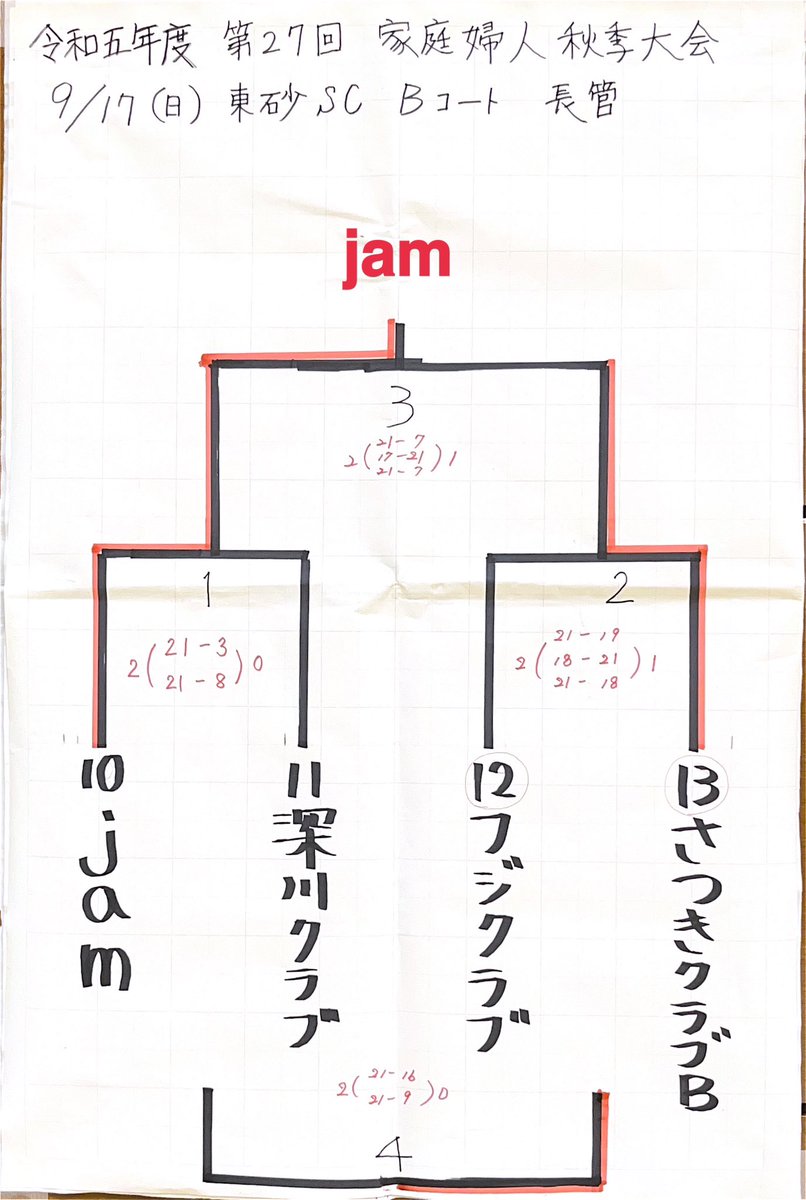 令和五年度 第27回 家庭婦人 秋季大会
9/17(日) 東砂SC Bコート 長管
jam
3
2(21-7 17-21 21-7)1
1
2(21-3 21-8)0
2
2(21-19 18-21 21-18)1
10 jam
11 深川クラブ
⑫ フジクラブ
⑬ さつきクラブB
2(21-16 21-9)0
4